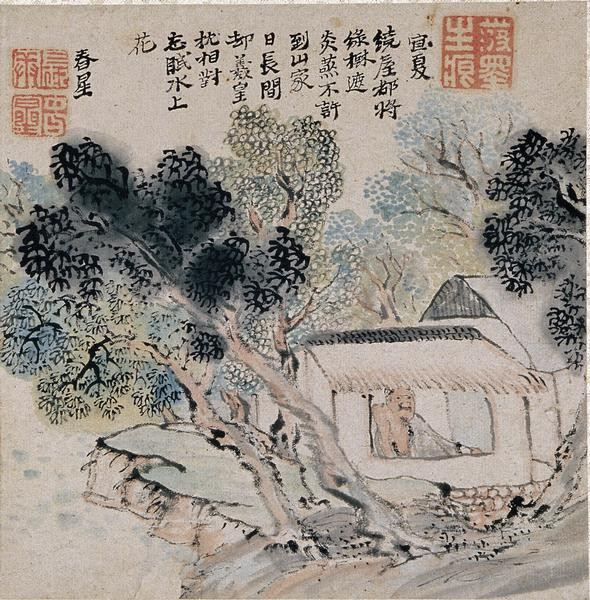 宜夏
繞屋都将
緑樹遮
炎蒸不許
到山家
日長間
却羲皇
枕相對
忘眠水上
花
春星